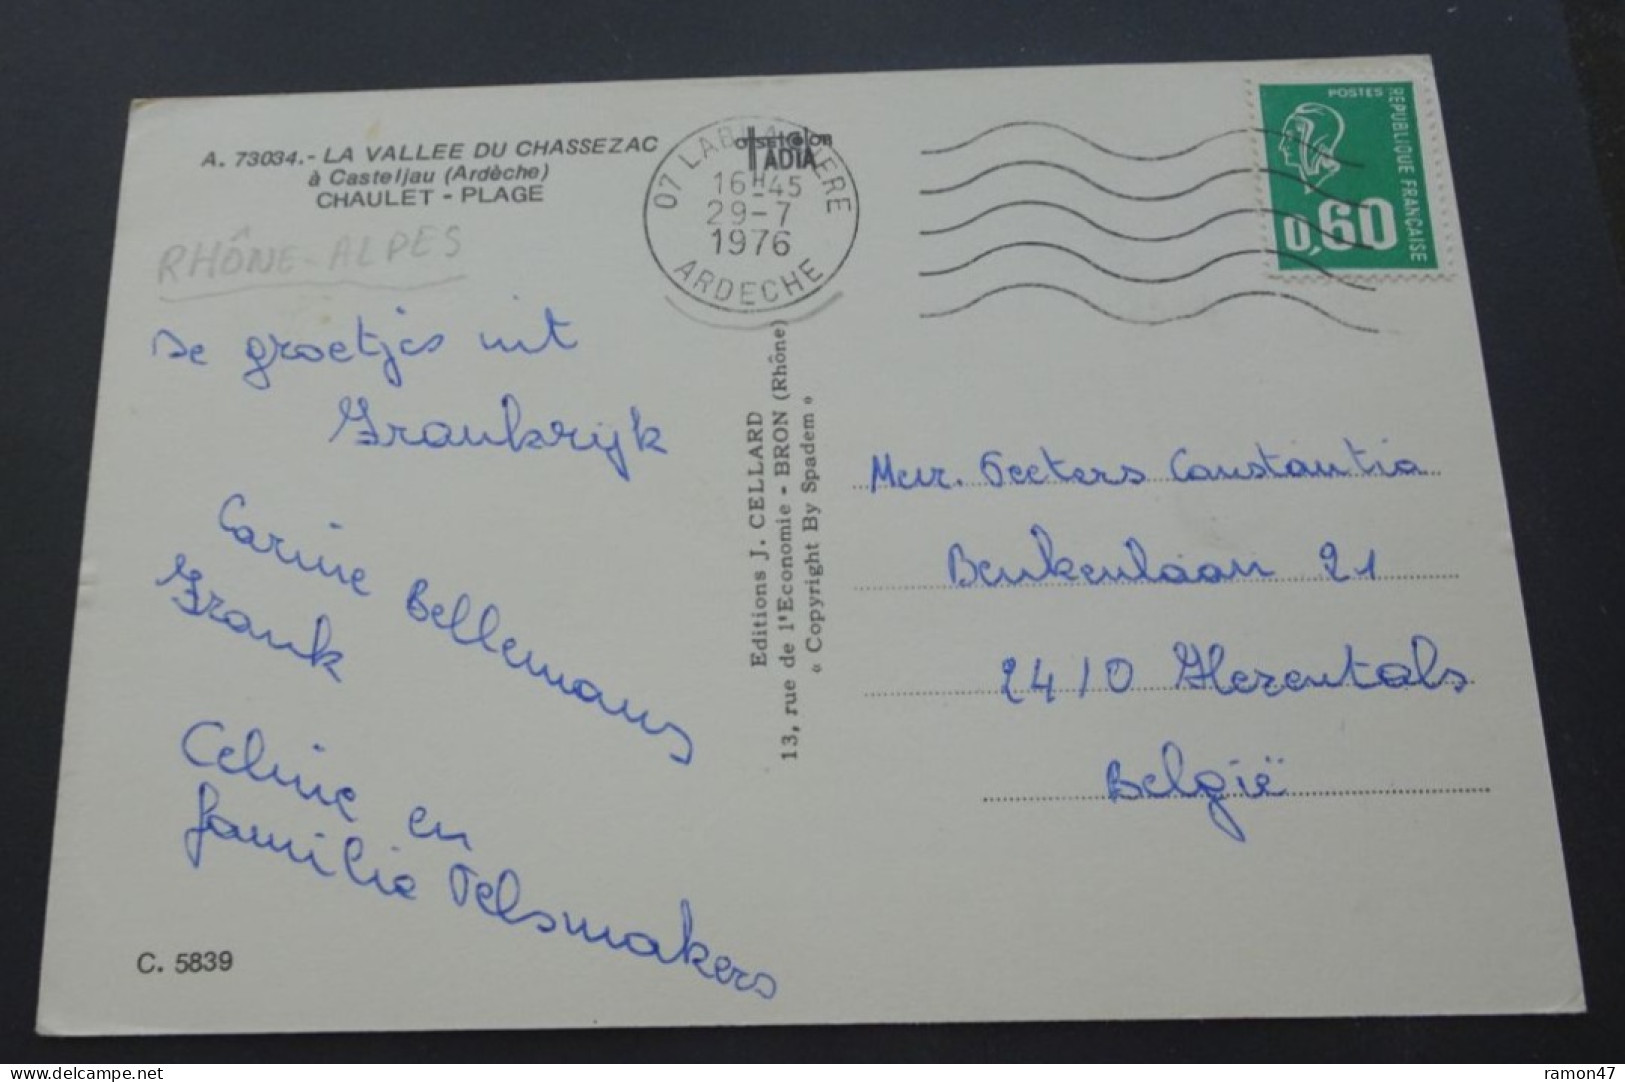 A. 73034.- LA VALLEE DU CHASSEZAC
à Casteljau (Ardèche)
CHAULET - PLAGE
RHÔNE-ALPES
De groetjes uit
Frankrijk
Carine Bellemans
Frank
Celine en
familie Pelsmakers
C. 5839
ADIA
07 LABLACHERE
16H45
29-7
1976
ARDECHE
Editions J. CELLARD
13, rue de l'Economie - BRON (Rhône)
« Copyright By Spadem »
POSTES
REPUBLIQUE FRANÇAISE
0,60
Mevr. Peeters Constantia
Beukenlaan 21
2410 Herentals
België
delcampe.net
ramon47